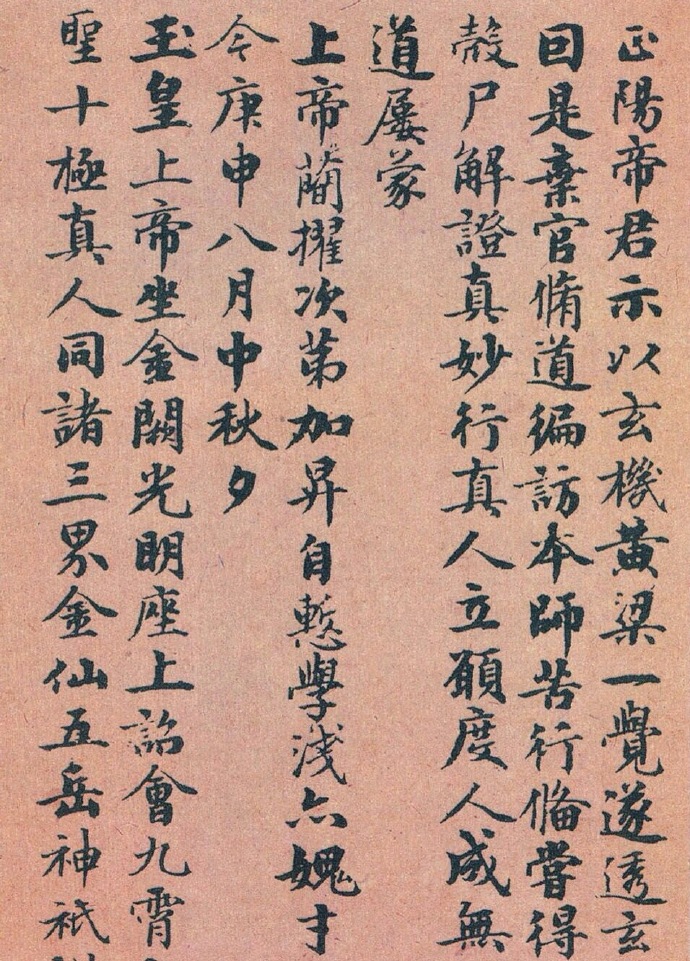 正陽帝君示以玄機黄梁一覺遂透玄
囙是棄官脩道徧訪本師苦行備嘗得
殻尸解證真妙行真人立願度人成無
道屢蒙
上帝蕳擢次第加昇自慙學淺亦媿才
今庚申八月中秋夕
玉皇上帝坐金闕光明座上詔會九霄
聖十極真人同諸三界金仙五岳神祇